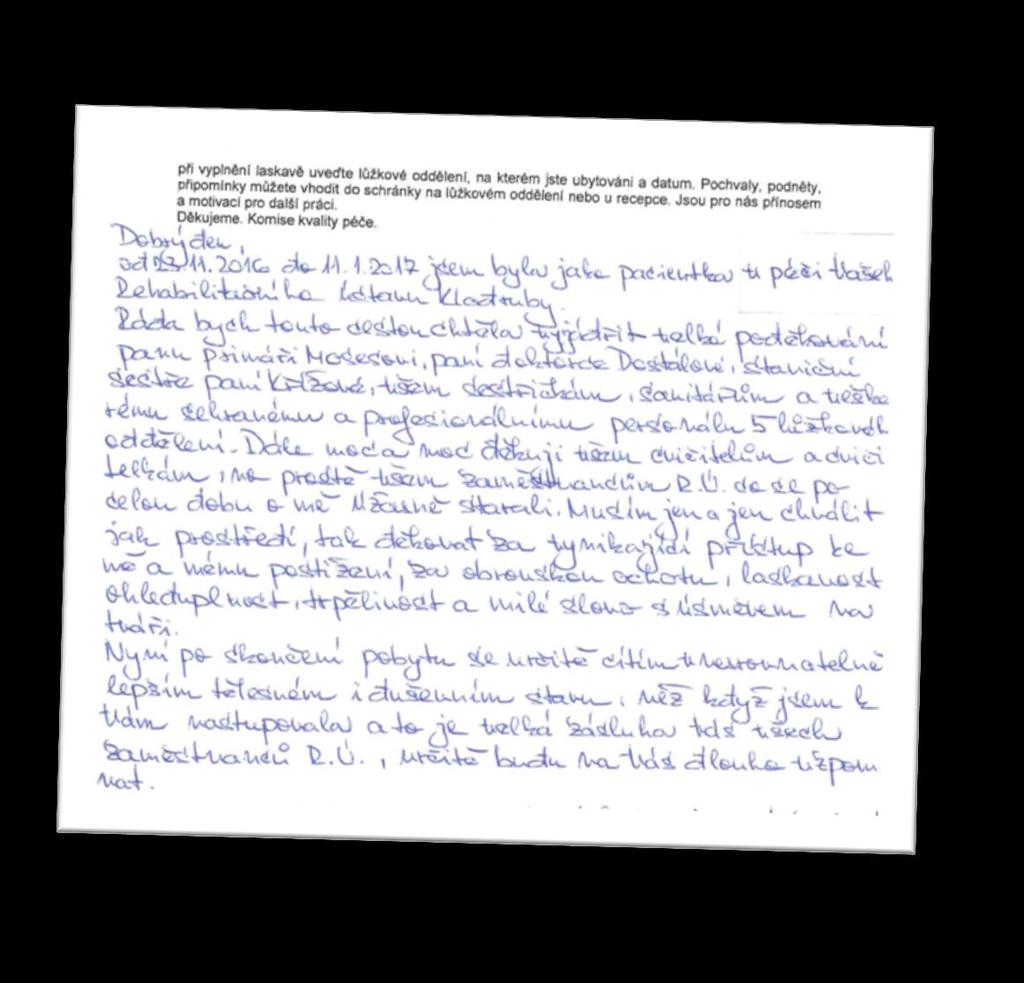 při vyplnění laskavě uveďte lůžkové oddělení, na kterém jste ubytováni a datum. Pochvaly, podněty,
připomínky můžete vhodit do schránky na lůžkovém oddělení nebo u recepce. Jsou pro nás přínosem
a motivací pro další práci.
Děkujeme. Komise kvality péče.
Dobrý den,
od 23.11.2016 do 11.1.2017 jsem byla jako pacientka v péči Vašeh
Rehabilitačního ústavu Kladruby.
Ráda bych touto cestou chtěla vyjádřit velké poděkování
panu primáři Mosesovi, paní doktorce Dostálové, staniční
sestře paní Křížové, všem sestřičkám, sanitářům a veške
rému sehranému a profesionálnímu personálu 5 lůžkovéh
oddělení. Dále moc a moc děkuji všem cvičitelům a cviči
telkám, no prostě všem zaměstnancům R.Ú. co se po
celou dobu o mě úžasně starali. Musím jen a jen chválit
jak prostředí, tak děkovat za vynikající přístup ke
mě a mému postižení, za obrouskou ochotu, laskavost
ohleduplnost, trpělivost a milé slovo s úsměvem na
tváři.
Nyní po skončení pobytu se určitě cítím v nesrovnatelně
lepším tělesném i duševním stavu, něž když jsem k
Vám nastupovala a to je velká zásluha Vás všech
zaměstnanců R.Ú., určitě budu na Vás dlouho vzpom
nat.